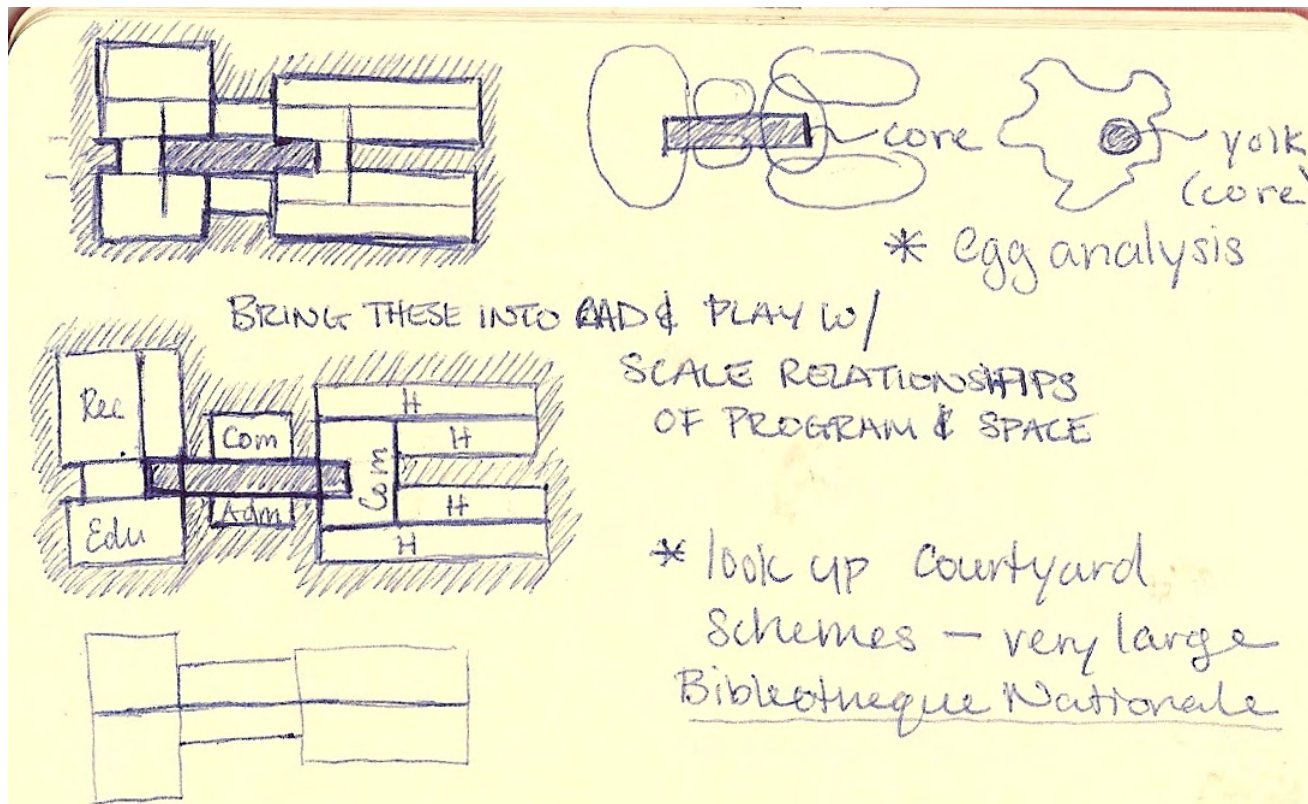 core
yolk
(core)
* egg analysis
BRING THESE INTO CAD & PLAY W/
SCALE RELATIONSHIPS
OF PROGRAM & SPACE
Rec
Com
H
H
Com
Adm
Edu
H
H
* look up Courtyard
Schemes — very large
Bibleotheque Nationale